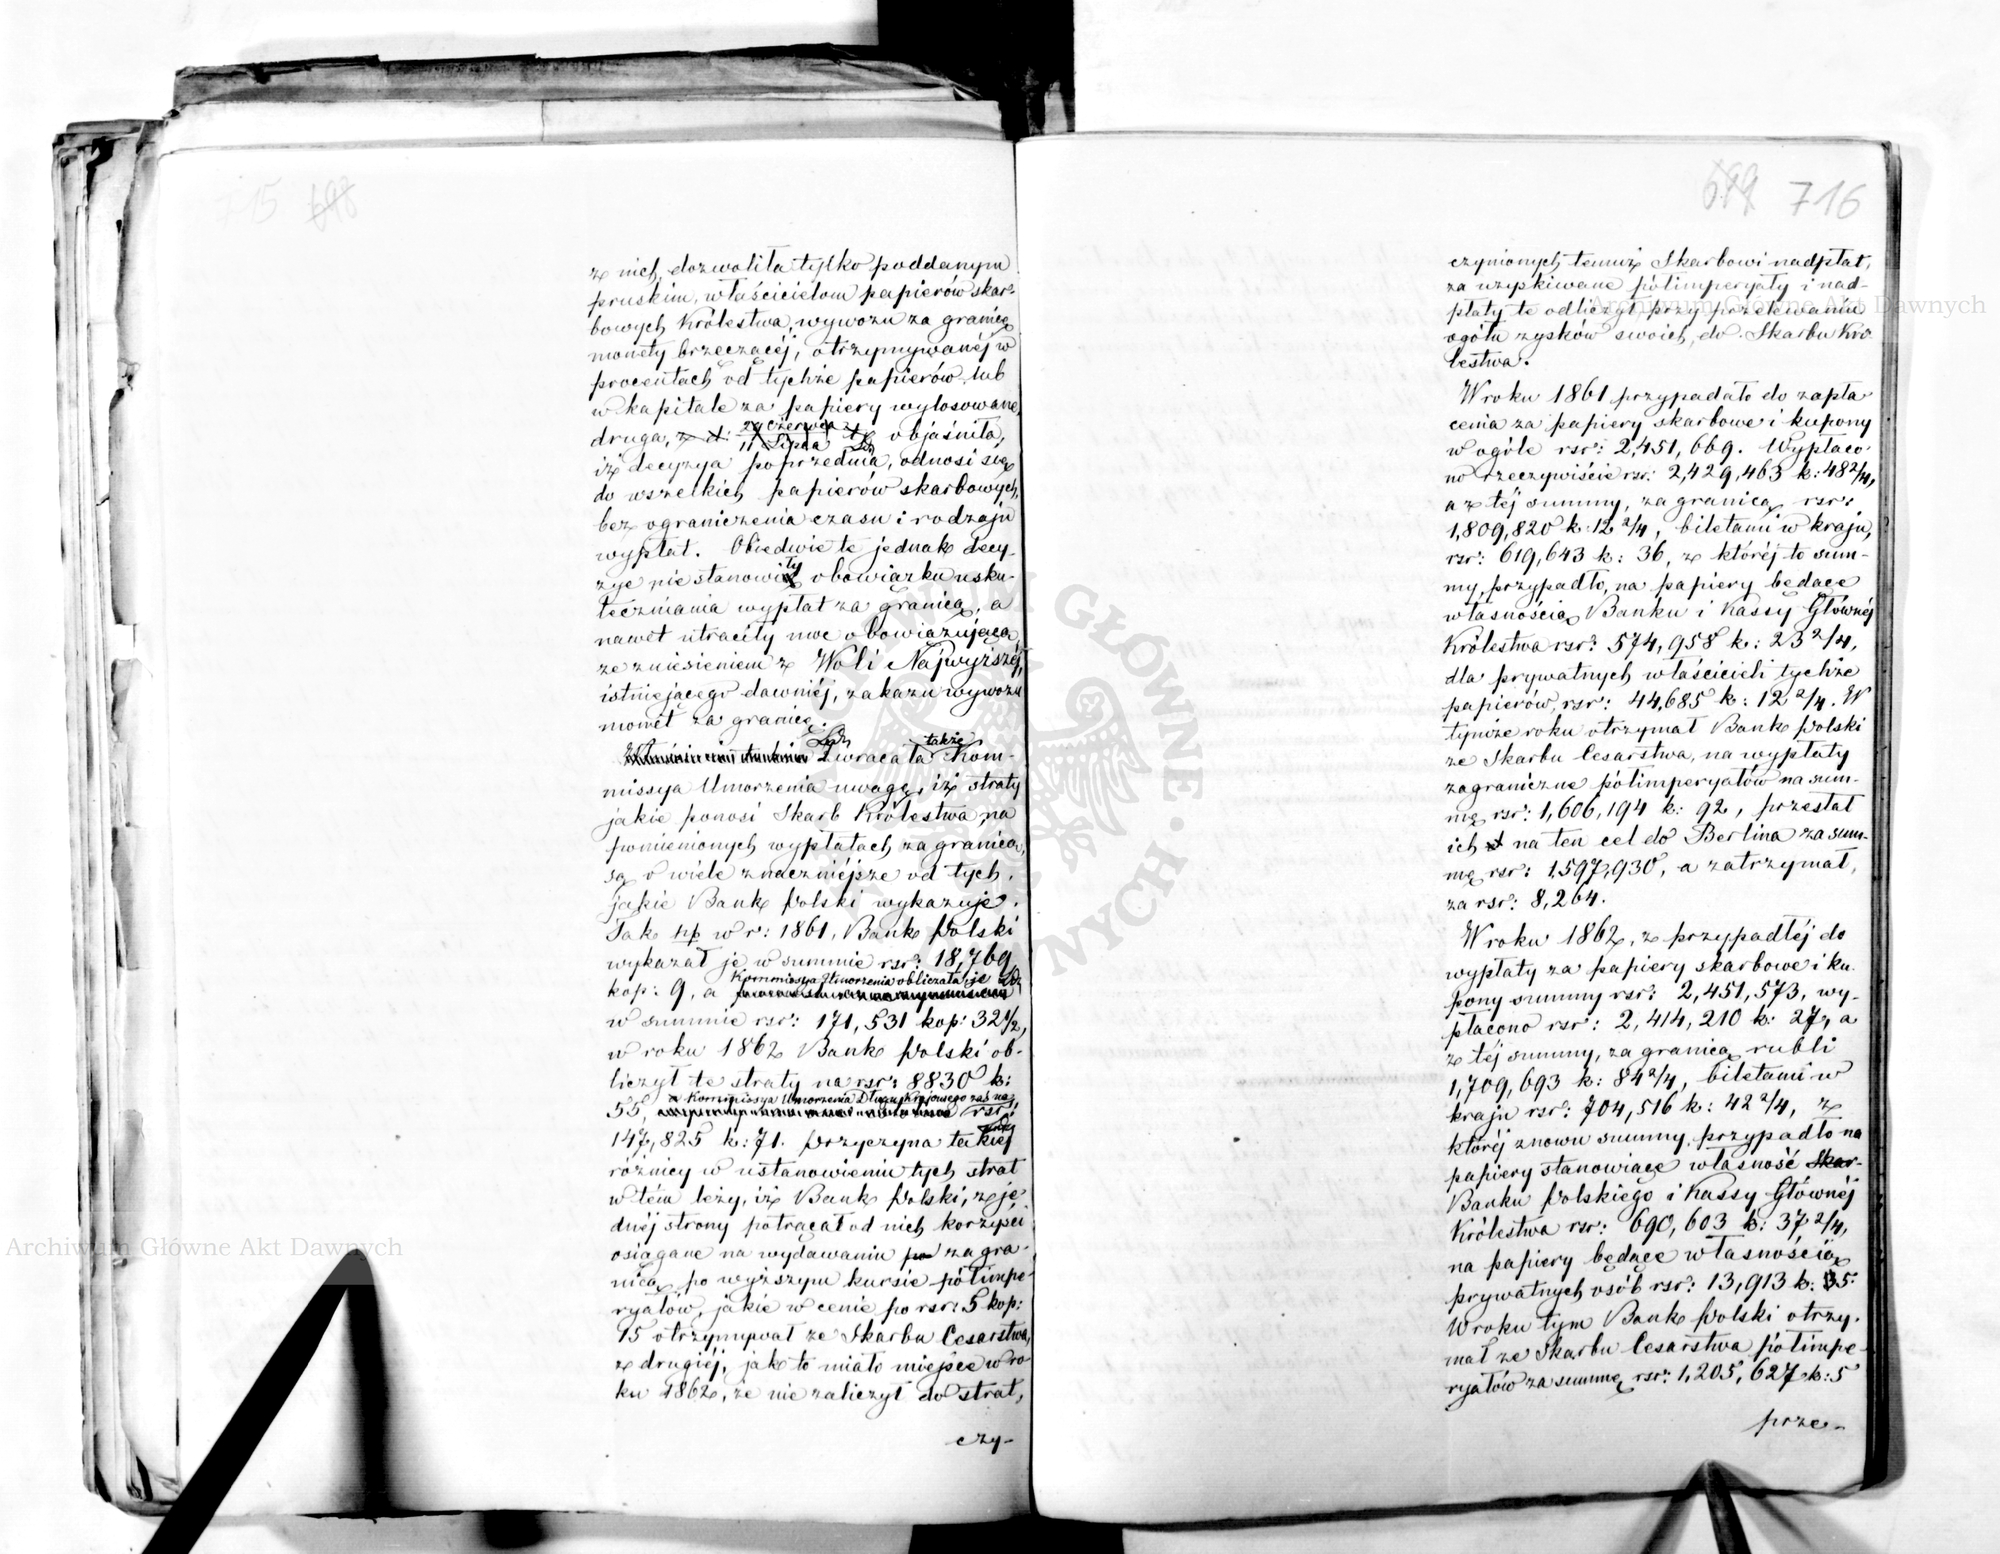 715 698
z nich, dozwoliła tylko poddanym
pruskim, właścicielom papierów skar-
bowych Królestwa, wywozu za granicę
monety brzęczącéj, otrzymywanéj w
procentach od tychże papierów, lub
w kapitale za papiery wylosowane,
druga, z d: 29 Czerwca / 11 Lipca objaśniła,
iż decyzya poprzednia, odnosi się
do wszelkich papierów skarbowych,
bez ograniczenia czasu i rodzaju
wypłat. Obiedwie te jednak decy-
zye nie stanowiły obowiązku usku-
teczniania wypłat za granicą, a
nawet utraciły moc obowiązującą
ze zniesieniem z Woli Najwyższéj,
istniejącego dawniéj, zakazu wywozu
monet za granicę.
Zwracała także Kom-
missya Umorzenia uwagę, iż straty
jakie ponosi Skarb Królestwa na
pomienionych wypłatach za granicą,
są o wiele znaczniéjsze od tych,
jakie Bank Polski wykazuje.
Tak np w r: 1861, Bank Polski
wykazał je w summie rsr: 18,769
kop: 9, a Kommissya Umorzenia obliczała je
w summie rsr: 171,531 kop: 32 1/2,
w roku 1862 Bank Polski ob-
liczył te straty na rsr: 8830 k:
55, a Kommissya Umorzenia Długu Krajowego zaś na rsr:
147,825 k: 71. Przyczyna takiéj
różnicy w ustanowieniu tych strat
w tém leży, iż Bank Polski, z je-
dnéj strony potrącał od nich korzyści
osiągane na wydawaniu po za gra-
nicą, po wyższym kursie półimpe-
ryałów, jakie w cenie po rsr: 5 kop:
15 otrzymywał ze Skarbu Cesarstwa,
z drugiéj, jak to miało miejsce w ro-
ku 1862, że nie zaliczył do strat,
czy-
699 716
czynionych temuż Skarbowi nadpłat,
za uzyskiwane półimperyały i nad-
płaty te odliczył, przy przelewaniu
ogółu zysków swoich, do Skarbu Kró-
lestwa.
W roku 1861 przypadało do zapła-
cenia za papiery skarbowe i kupony
w ogóle rsr: 2,451,669. Wypłaco-
no rzeczywiście rsr: 2,429,463 k: 48 2/4,
a z téj summy, za granicą rsr:
1,809,820 k: 12 2/4, biletami w kraju,
rsr: 619,643 k: 36, z któréj to sum-
my, przypadło, na papiery będące
własnością Banku i Kassy Głównéj
Królestwa rsr: 574,958 k: 23 2/4,
dla prywatnych właścicieli tychże
papierów, rsr: 44,685 k: 12 2/4. W
tymże roku otrzymał Bank Polski
ze Skarbu Cesarstwa, na wypłaty
zagraniczne półimperyałów na sum-
mę rsr: 1,606,194 k: 92, przesłał
ich na ten cel do Berlina za sum-
mę rsr: 1,597,930, a zatrzymał,
za rsr: 8,264.
W roku 1862, z przypadłéj do
wypłaty za papiery skarbowe i ku-
pony summy rsr: 2,451,573, wy-
płacono rsr: 2,414,210 k: 27, a
z téj summy, za granicą rubli
1,709,693 k: 84 2/4, biletami w
kraju rsr: 704,516 k: 42 2/4, z
któréj znowu summy, przypadło na
papiery stanowiące własność Skar-
Banku Polskiego i Kassy Głównéj
Królestwa rsr: 690,603 k: 37 2/4,
na papiery będące własnością
prywatnych osób rsr: 13,913 k: 5.
W roku tym Bank Polski otrzy-
mał ze Skarbu Cesarstwa półimpe-
ryałów za summę rsr: 1,205,627 k: 5
prze-
Archiwum Główne Akt Dawnych
Archiwum Główne Akt Dawnych